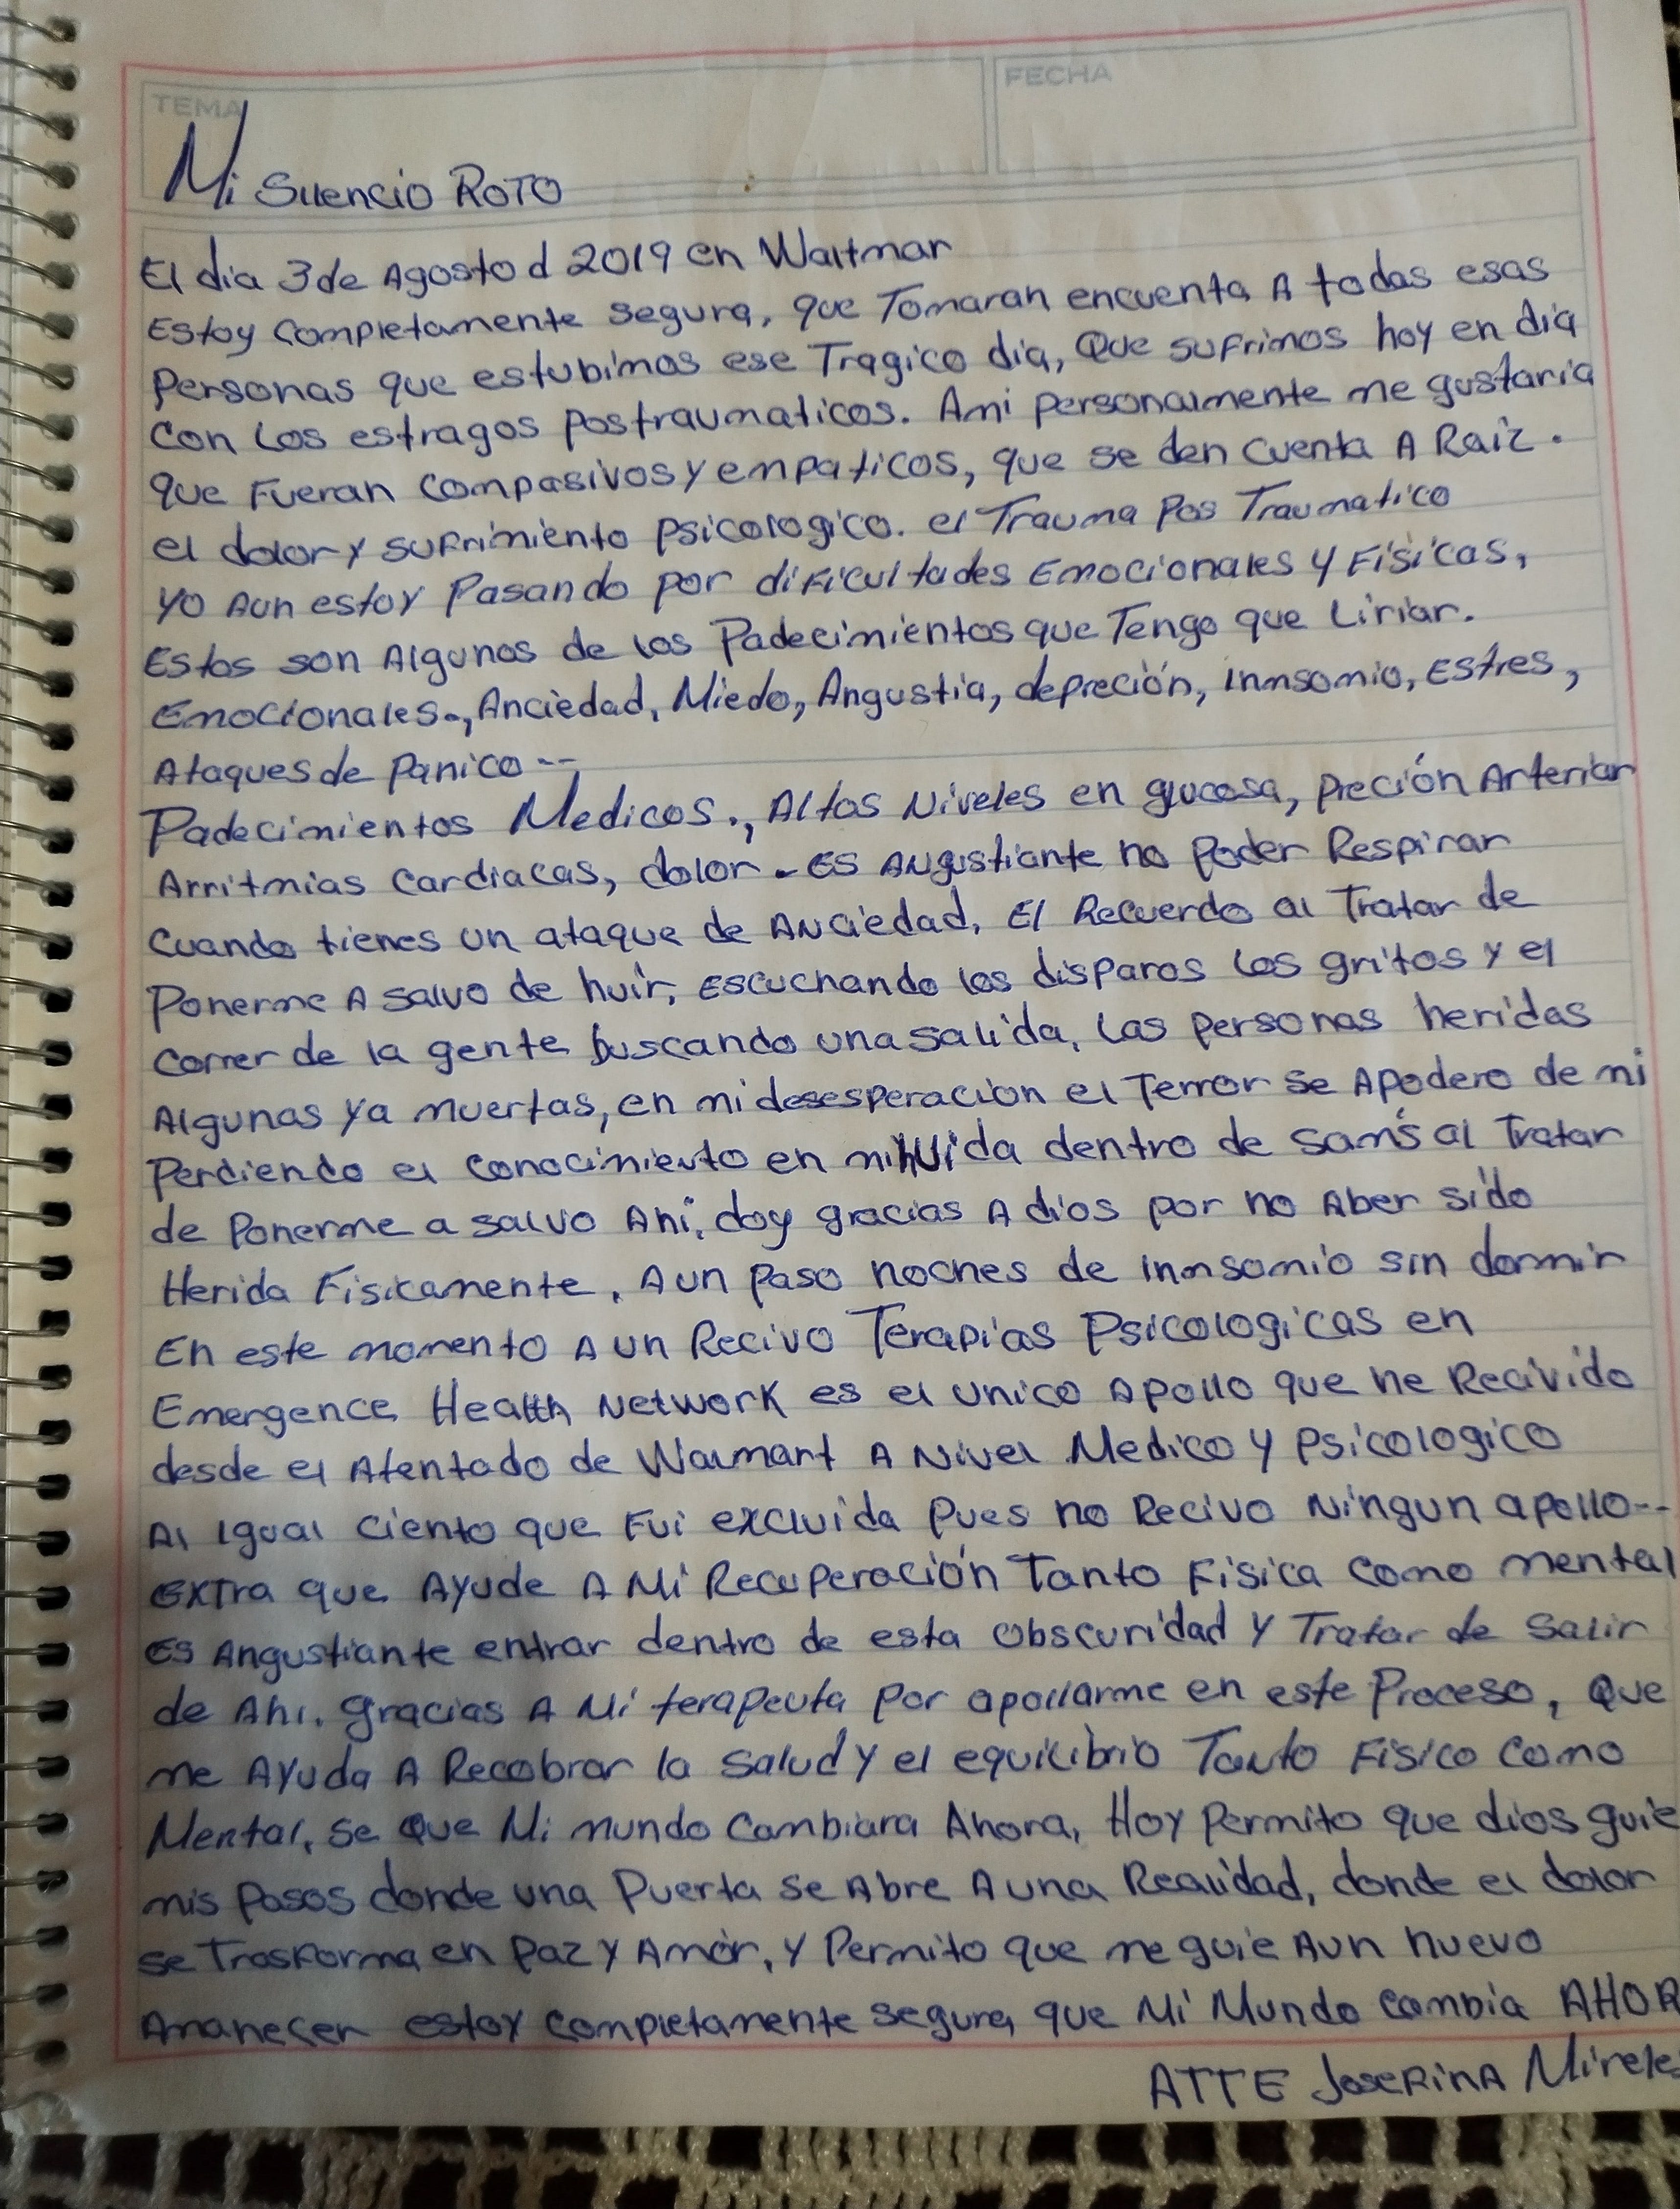 TEMA
FECHA
Mi Silencio Roto
El dia 3 de Agosto d 2019 en Waltmar
Estoy completamente segura, que Tomaran encuenta A todas esas
personas que estubimos ese Tragico dia, Que sufrimos hoy en dia
con los estragos postraumaticos. Ami personalmente me gustaria
que Fueran compasivos y empaticos, que se den cuenta A Raiz.
el dolor y sufrimiento psicologico. el Trauma Pos Traumatico
yo Aun estoy Pasando por dificultades Emocionales y Fisicas,
Estos son Algunos de los Padecimientos que Tengo que Liriar.
Emocionales., Anciedad, Miedo, Angustia, depreción, innsomio, Estres,
Ataques de Panico --
Padecimientos Medicos., Altos Niveles en glucosa, preción Arterial
Arritmias cardiacas, dolor - es Angustiante no Poder Respirar
cuando tienes un ataque de Anciedad, El Recuerdo al Tratar de
Ponerme A salvo de huir, escuchando los disparos los gritos y el
correr de la gente buscando una salida, las personas heridas
Algunas ya muertas, en mi desesperacion el Terror se Apodero de mi
Perdiendo el conocimiento en mi huida dentro de sam's al Tratar
de Ponerme a salvo Ahi, doy gracias A dios por no Aber sido
Herida Fisicamente, Aun paso noches de innsomio sin dormir
En este momento Aun Recivo Terapias Psicologicas en
Emergence Health Network es el unico Apollo que he Recivido
desde el Atentado de Walmart A Nivel Medico y psicologico
Al igual ciento que Fui excluida Pues no Recivo Ningun apollo--
extra que Ayude A Mi Recuperación Tanto Fisica como mental
es Angustiante entrar dentro de esta obscuridad y Tratar de Salir
de Ahi. gracias A Mi terapeuta por apollarme en este Proceso, Que
me Ayuda A Recobrar la salud y el equilibrio Tanto Fisico como
Mental, se Que Mi mundo cambiara Ahora, Hoy Permito que dios guie
mis Pasos donde una Puerta se Abre A una Realidad, donde el dolor
se Trasforma en Paz y Amor, y Permito que me guie Aun nuevo
Amanecer estoy completamente segura que Mi Mundo cambia AHOR
ATTE Josefina Mirele